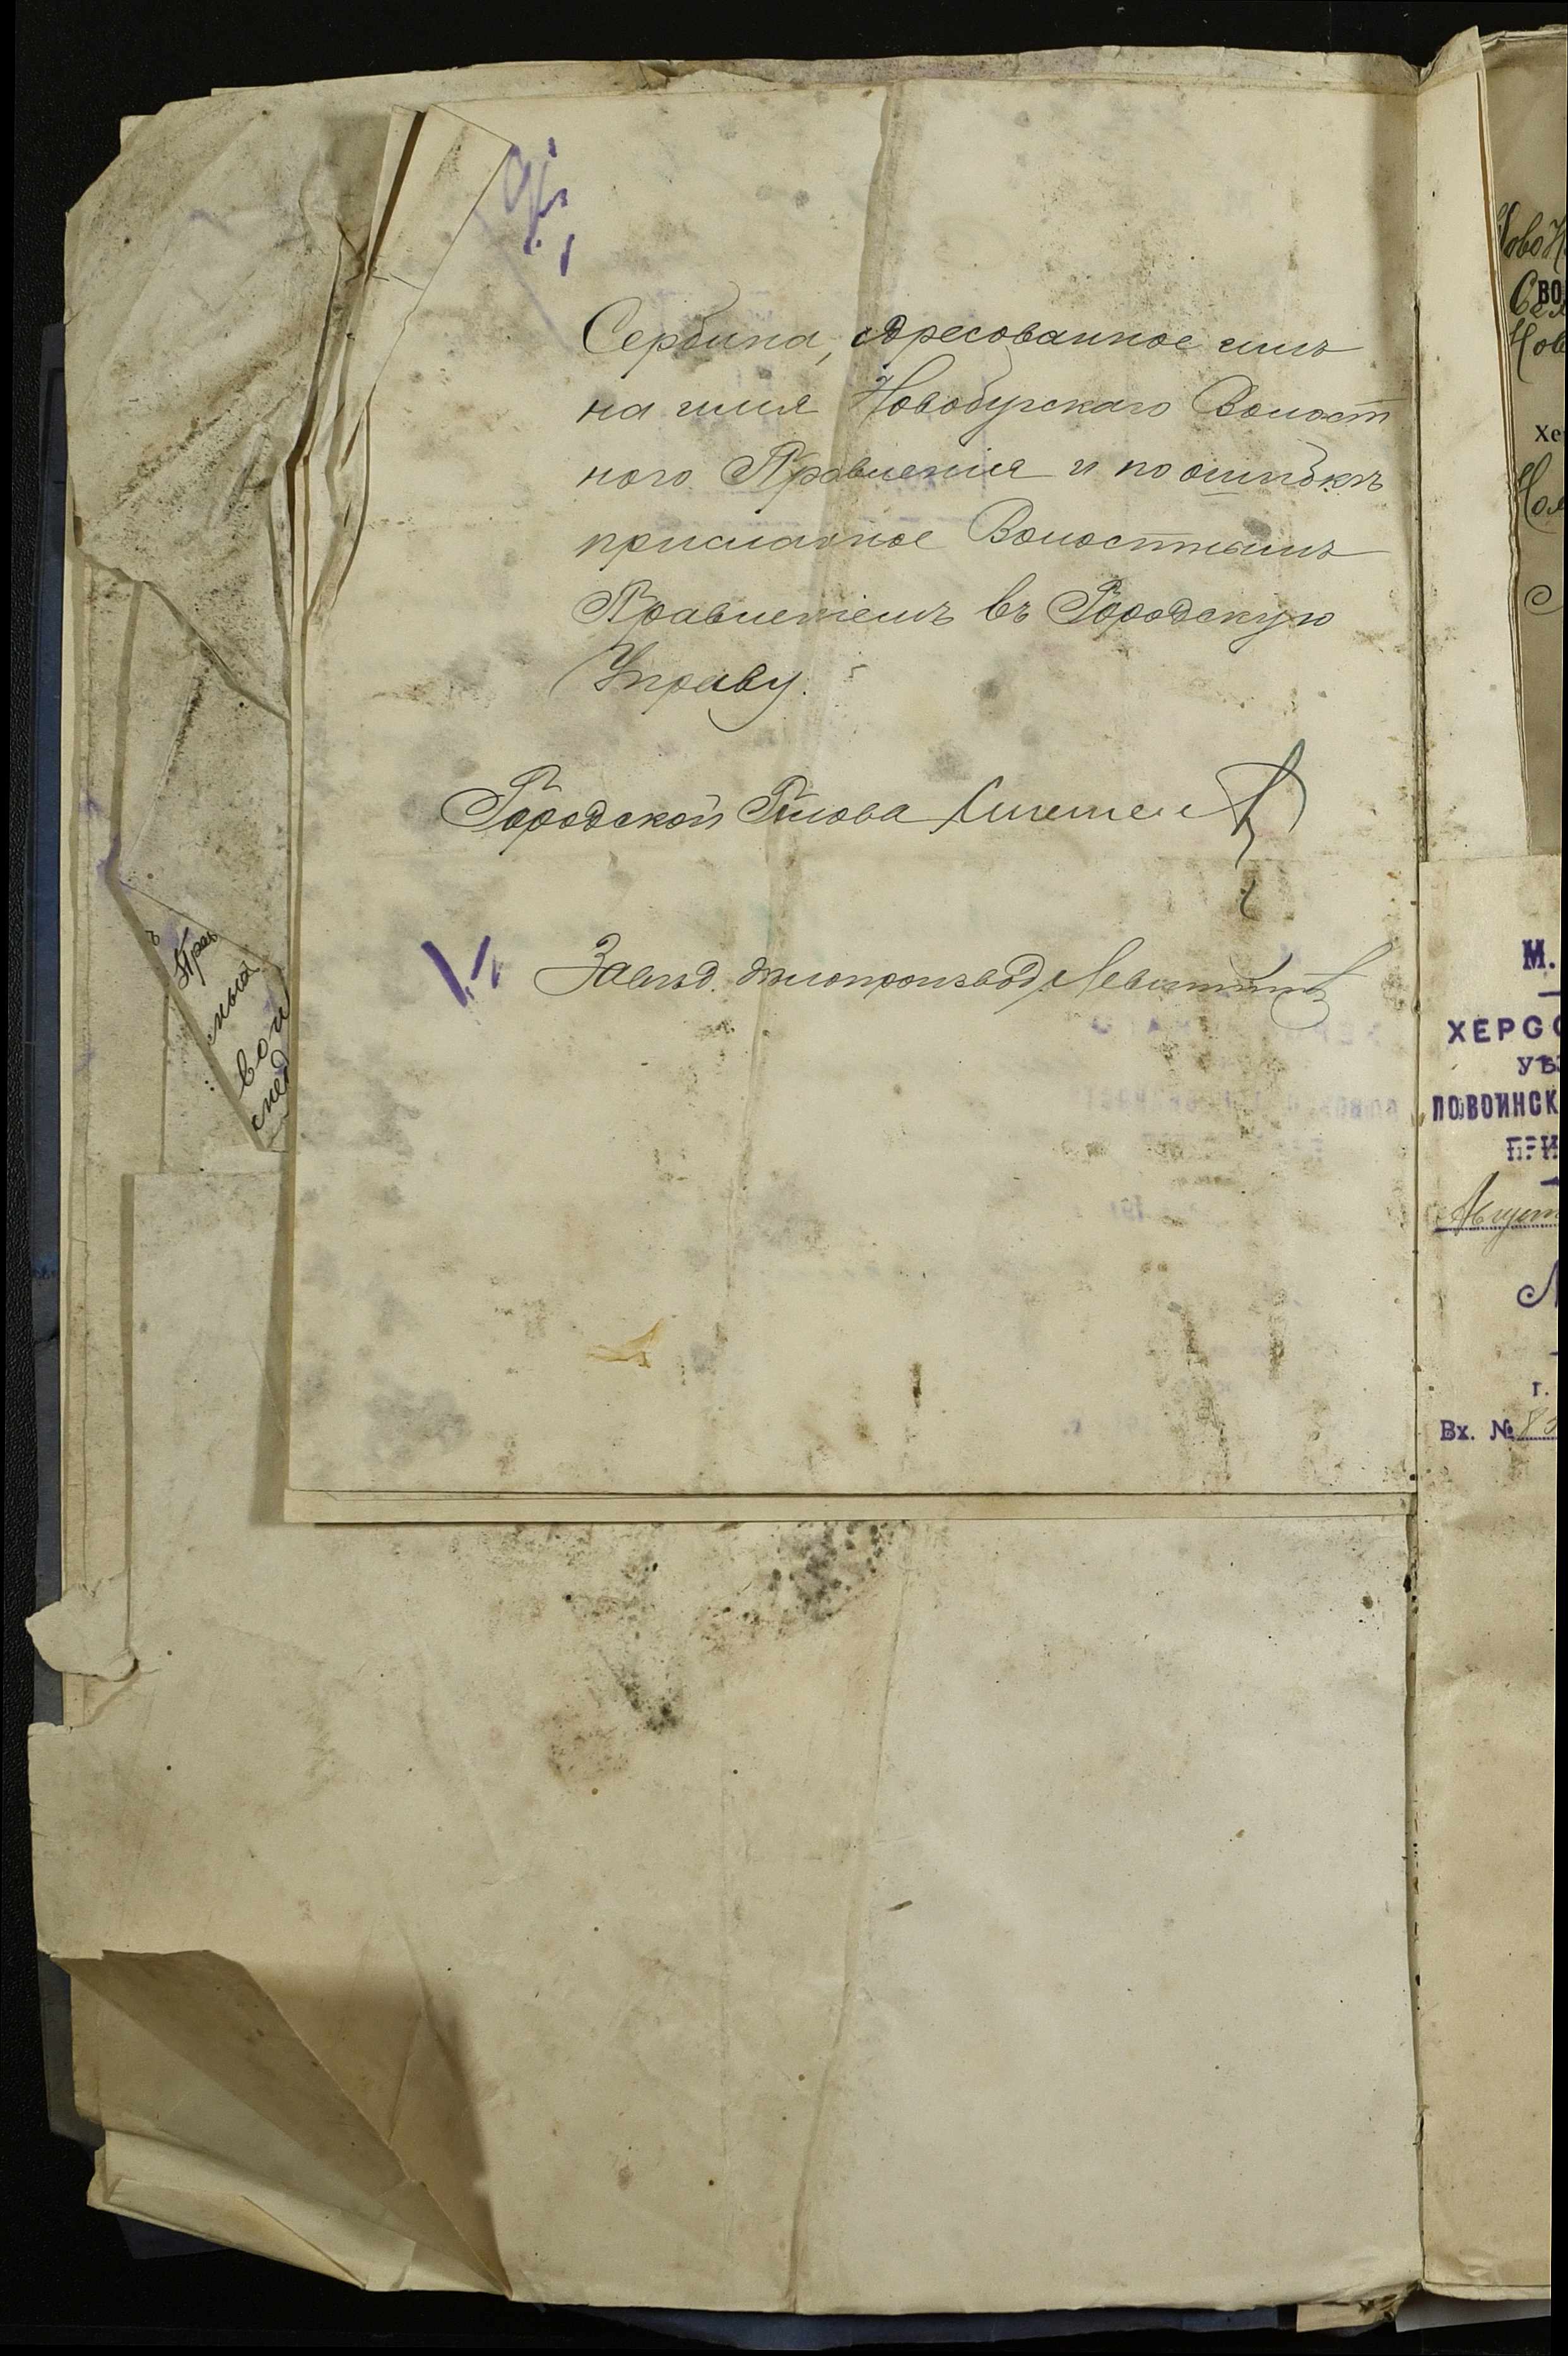 Сербина, адресованное имъ
на имя Новобугскаго Волост
ного Правленія и по ошибкѣ
присланное Волостнымъ
Правленіемъ въ Городскую
Управу.
Городской Голова
Завѣд. дѣлопроизвод. Левитт
Прав
ныя
вои
слѣд
Ново
ВО
Нов
Хе
М.
ХЕРСО
УѢЗ
ПОВОИНСК
ПРИ
Август
г.
Вх. №